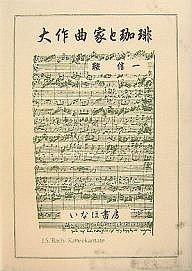 大作曲家と珈琲
鞍信一
いなほ書房
J.S.Bach: Kaffeekantate